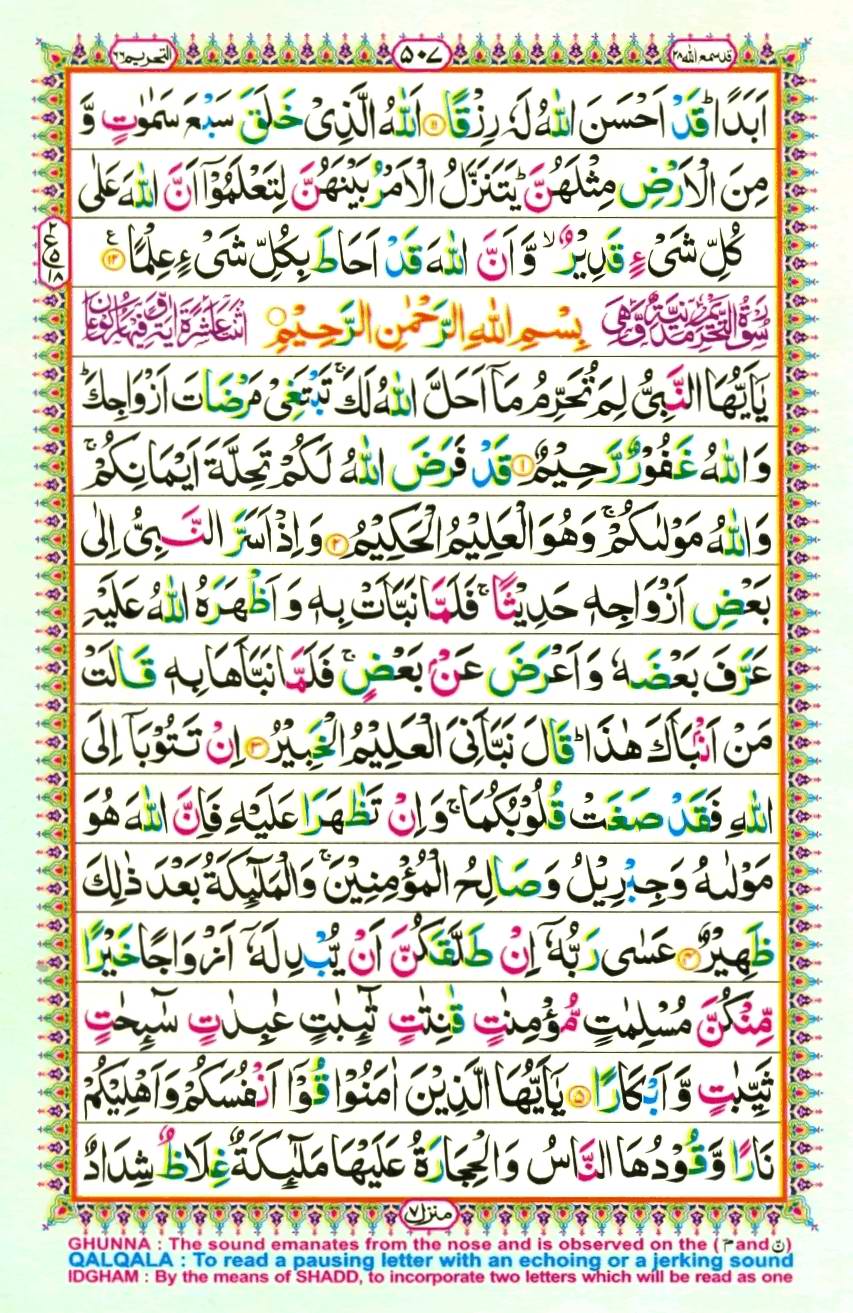 قد سمع الله ٢٨
٥٠٧
التحريم ٦٦
اَبَدًا ؕ قَدْ اَحْسَنَ اللّٰهُ لَهٗ رِزْقًا ۝۱۱ اَللّٰهُ الَّذِیْ خَلَقَ سَبْعَ سَمٰوٰتٍ وَّ
مِنَ الْاَرْضِ مِثْلَهُنَّ ؕ یَتَنَزَّلُ الْاَمْرُ بَیْنَهُنَّ لِتَعْلَمُوْۤا اَنَّ اللّٰهَ عَلٰی
كُلِّ شَیْءٍ قَدِیْرٌ ۙ وَّ اَنَّ اللّٰهَ قَدْ اَحَاطَ بِكُلِّ شَیْءٍ عِلْمًا ۝۱۲ ع
٢
ع
٥
١٨
سُوْرَةُ التَّحْرِيْمِ مَدَنِيَّةٌ وَّهِيَ بِسْمِ اللّٰهِ الرَّحْمٰنِ الرَّحِیْمِ اثْنَتَا عَشْرَةَ اٰيَةً وَّفِيْهَا رُكُوْعَانِ
یٰۤاَیُّهَا النَّبِیُّ لِمَ تُحَرِّمُ مَاۤ اَحَلَّ اللّٰهُ لَكَ ۚ تَبْتَغِیْ مَرْضَاتَ اَزْوَاجِكَ ؕ
وَ اللّٰهُ غَفُوْرٌ رَّحِیْمٌ ۝۱ قَدْ فَرَضَ اللّٰهُ لَكُمْ تَحِلَّةَ اَیْمَانِكُمْ ۚ
وَ اللّٰهُ مَوْلٰىكُمْ ۚ وَ هُوَ الْعَلِیْمُ الْحَكِیْمُ ۝۲ وَ اِذْ اَسَرَّ النَّبِیُّ اِلٰی
بَعْضِ اَزْوَاجِهٖ حَدِیْثًا ۚ فَلَمَّا نَبَّاَتْ بِهٖ وَ اَظْهَرَهُ اللّٰهُ عَلَیْهِ
عَرَّفَ بَعْضَهٗ وَ اَعْرَضَ عَنْۢ بَعْضٍ ۚ فَلَمَّا نَبَّاَهَا بِهٖ قَالَتْ
مَنْ اَنْۢبَاَكَ هٰذَا ؕ قَالَ نَبَّاَنِیَ الْعَلِیْمُ الْخَبِیْرُ ۝۳ اِنْ تَتُوْبَاۤ اِلَی
اللّٰهِ فَقَدْ صَغَتْ قُلُوْبُكُمَا ۚ وَ اِنْ تَظٰهَرَا عَلَیْهِ فَاِنَّ اللّٰهَ هُوَ
مَوْلٰىهُ وَ جِبْرِیْلُ وَ صَالِحُ الْمُؤْمِنِیْنَ ۚ وَ الْمَلٰٓىِٕكَةُ بَعْدَ ذٰلِكَ
ظَهِیْرٌ ۝۴ عَسٰی رَبُّهٗۤ اِنْ طَلَّقَكُنَّ اَنْ یُّبْدِلَهٗۤ اَزْوَاجًا خَیْرًا
مِّنْكُنَّ مُسْلِمٰتٍ مُّؤْمِنٰتٍ قٰنِتٰتٍ تٰٓىِٕبٰتٍ عٰبِدٰتٍ سٰٓىِٕحٰتٍ
ثَیِّبٰتٍ وَّ اَبْكَارًا ۝۵ یٰۤاَیُّهَا الَّذِیْنَ اٰمَنُوْا قُوْۤا اَنْفُسَكُمْ وَ اَهْلِیْكُمْ
نَارًا وَّ قُوْدُهَا النَّاسُ وَ الْحِجَارَةُ عَلَیْهَا مَلٰٓىِٕكَةٌ غِلَاظٌ شِدَادٌ
منزل ٧
GHUNNA : The sound emanates from the nose and is observed on the ( م and ن )
QALQALA : To read a pausing letter with an echoing or a jerking sound
IDGHAM : By the means of SHADD, to incorporate two letters which will be read as one